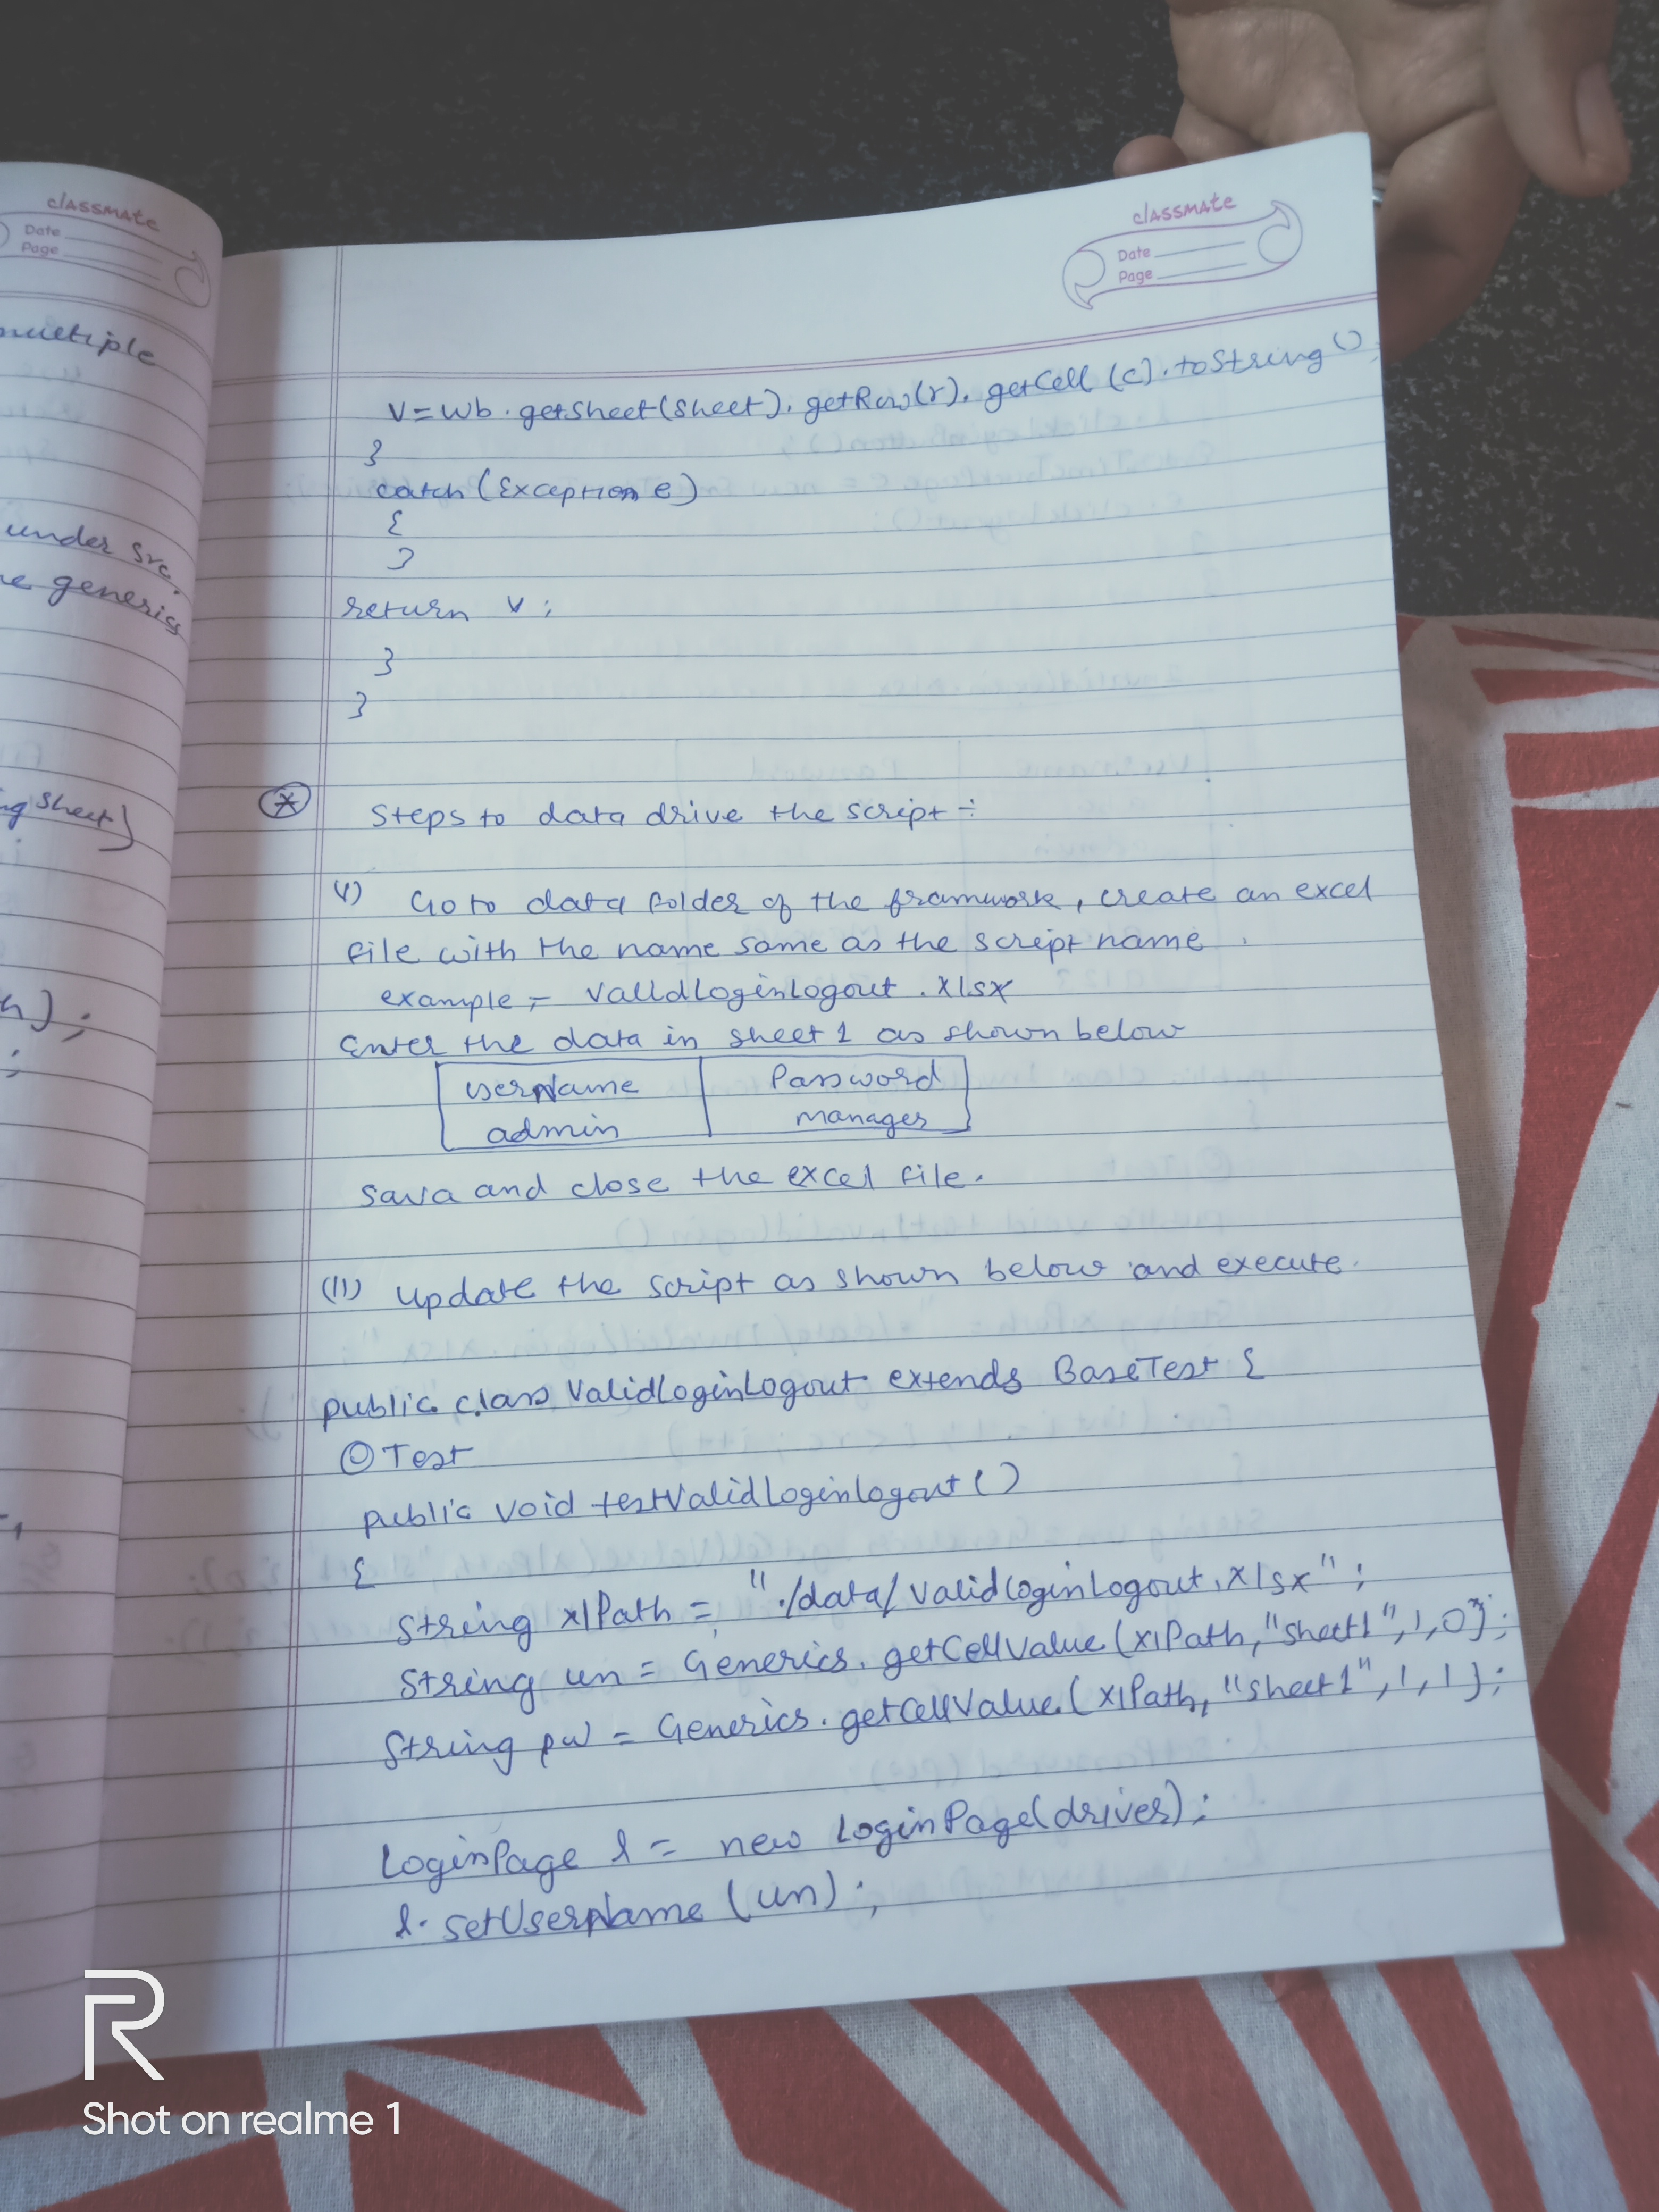 classmate
Date
Page
multiple
under src.
generics
sheet)
);
;
classmate
Date
Page
v=wb.getsheet(sheet).getRow(r).getCell(c).toString()
}
catch(Exception e)
{
}
return v;
}
}
* Steps to data drive the script:-
(I) Goto data folder of the framwork, create an excel
file with the name same as the script name.
example:- ValidLoginLogout.xlsx
Enter the data in sheet1 as shown below
UserName Password
admin manager
Sava and close the excel file.
(II) Update the script as shown below and execute.
public class ValidLoginLogout extends BaseTest {
@Test
public void testValidLoginlogout()
{
String xlPath = "./data/ValidLoginLogout.xlsx";
String un = Generics.getCellValue(xlPath,"sheet1",1,0);
String pw = Generics.getCellValue(xlPath,"sheet1",1,1);
LoginPage l = new LoginPage(driver);
l.setUserName(un);
R
Shot on realme 1